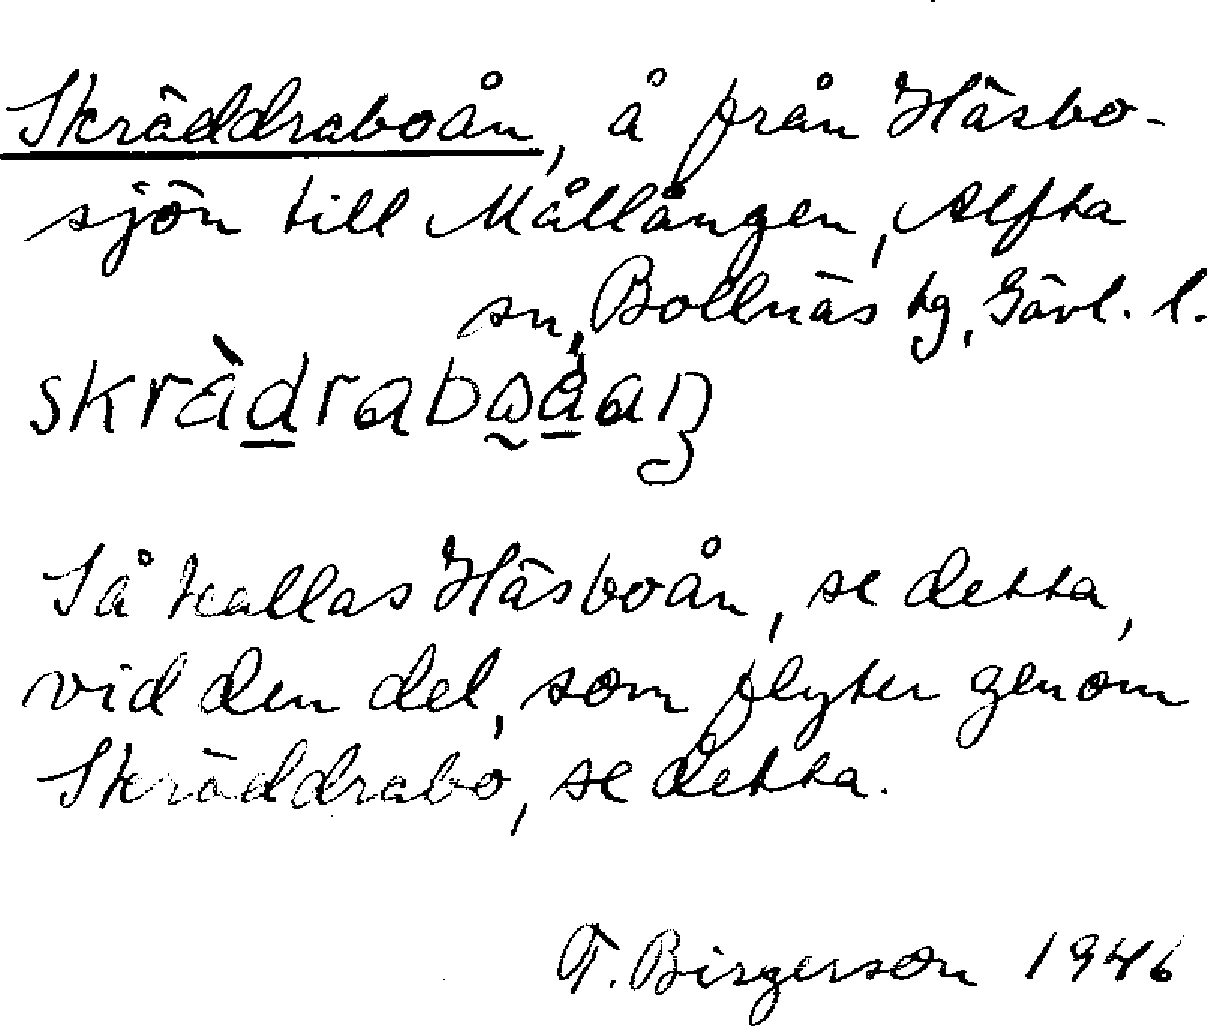 Skräddraboån, å från Häsbo-
sjön till Mållången, Alfta
sn, Bollnäs tg, Gävl. l.
Så kallas Häsboån, se detta,
vid den del, som flyter genom
Skräddrabo, se detta.
T. Birgerson 1946